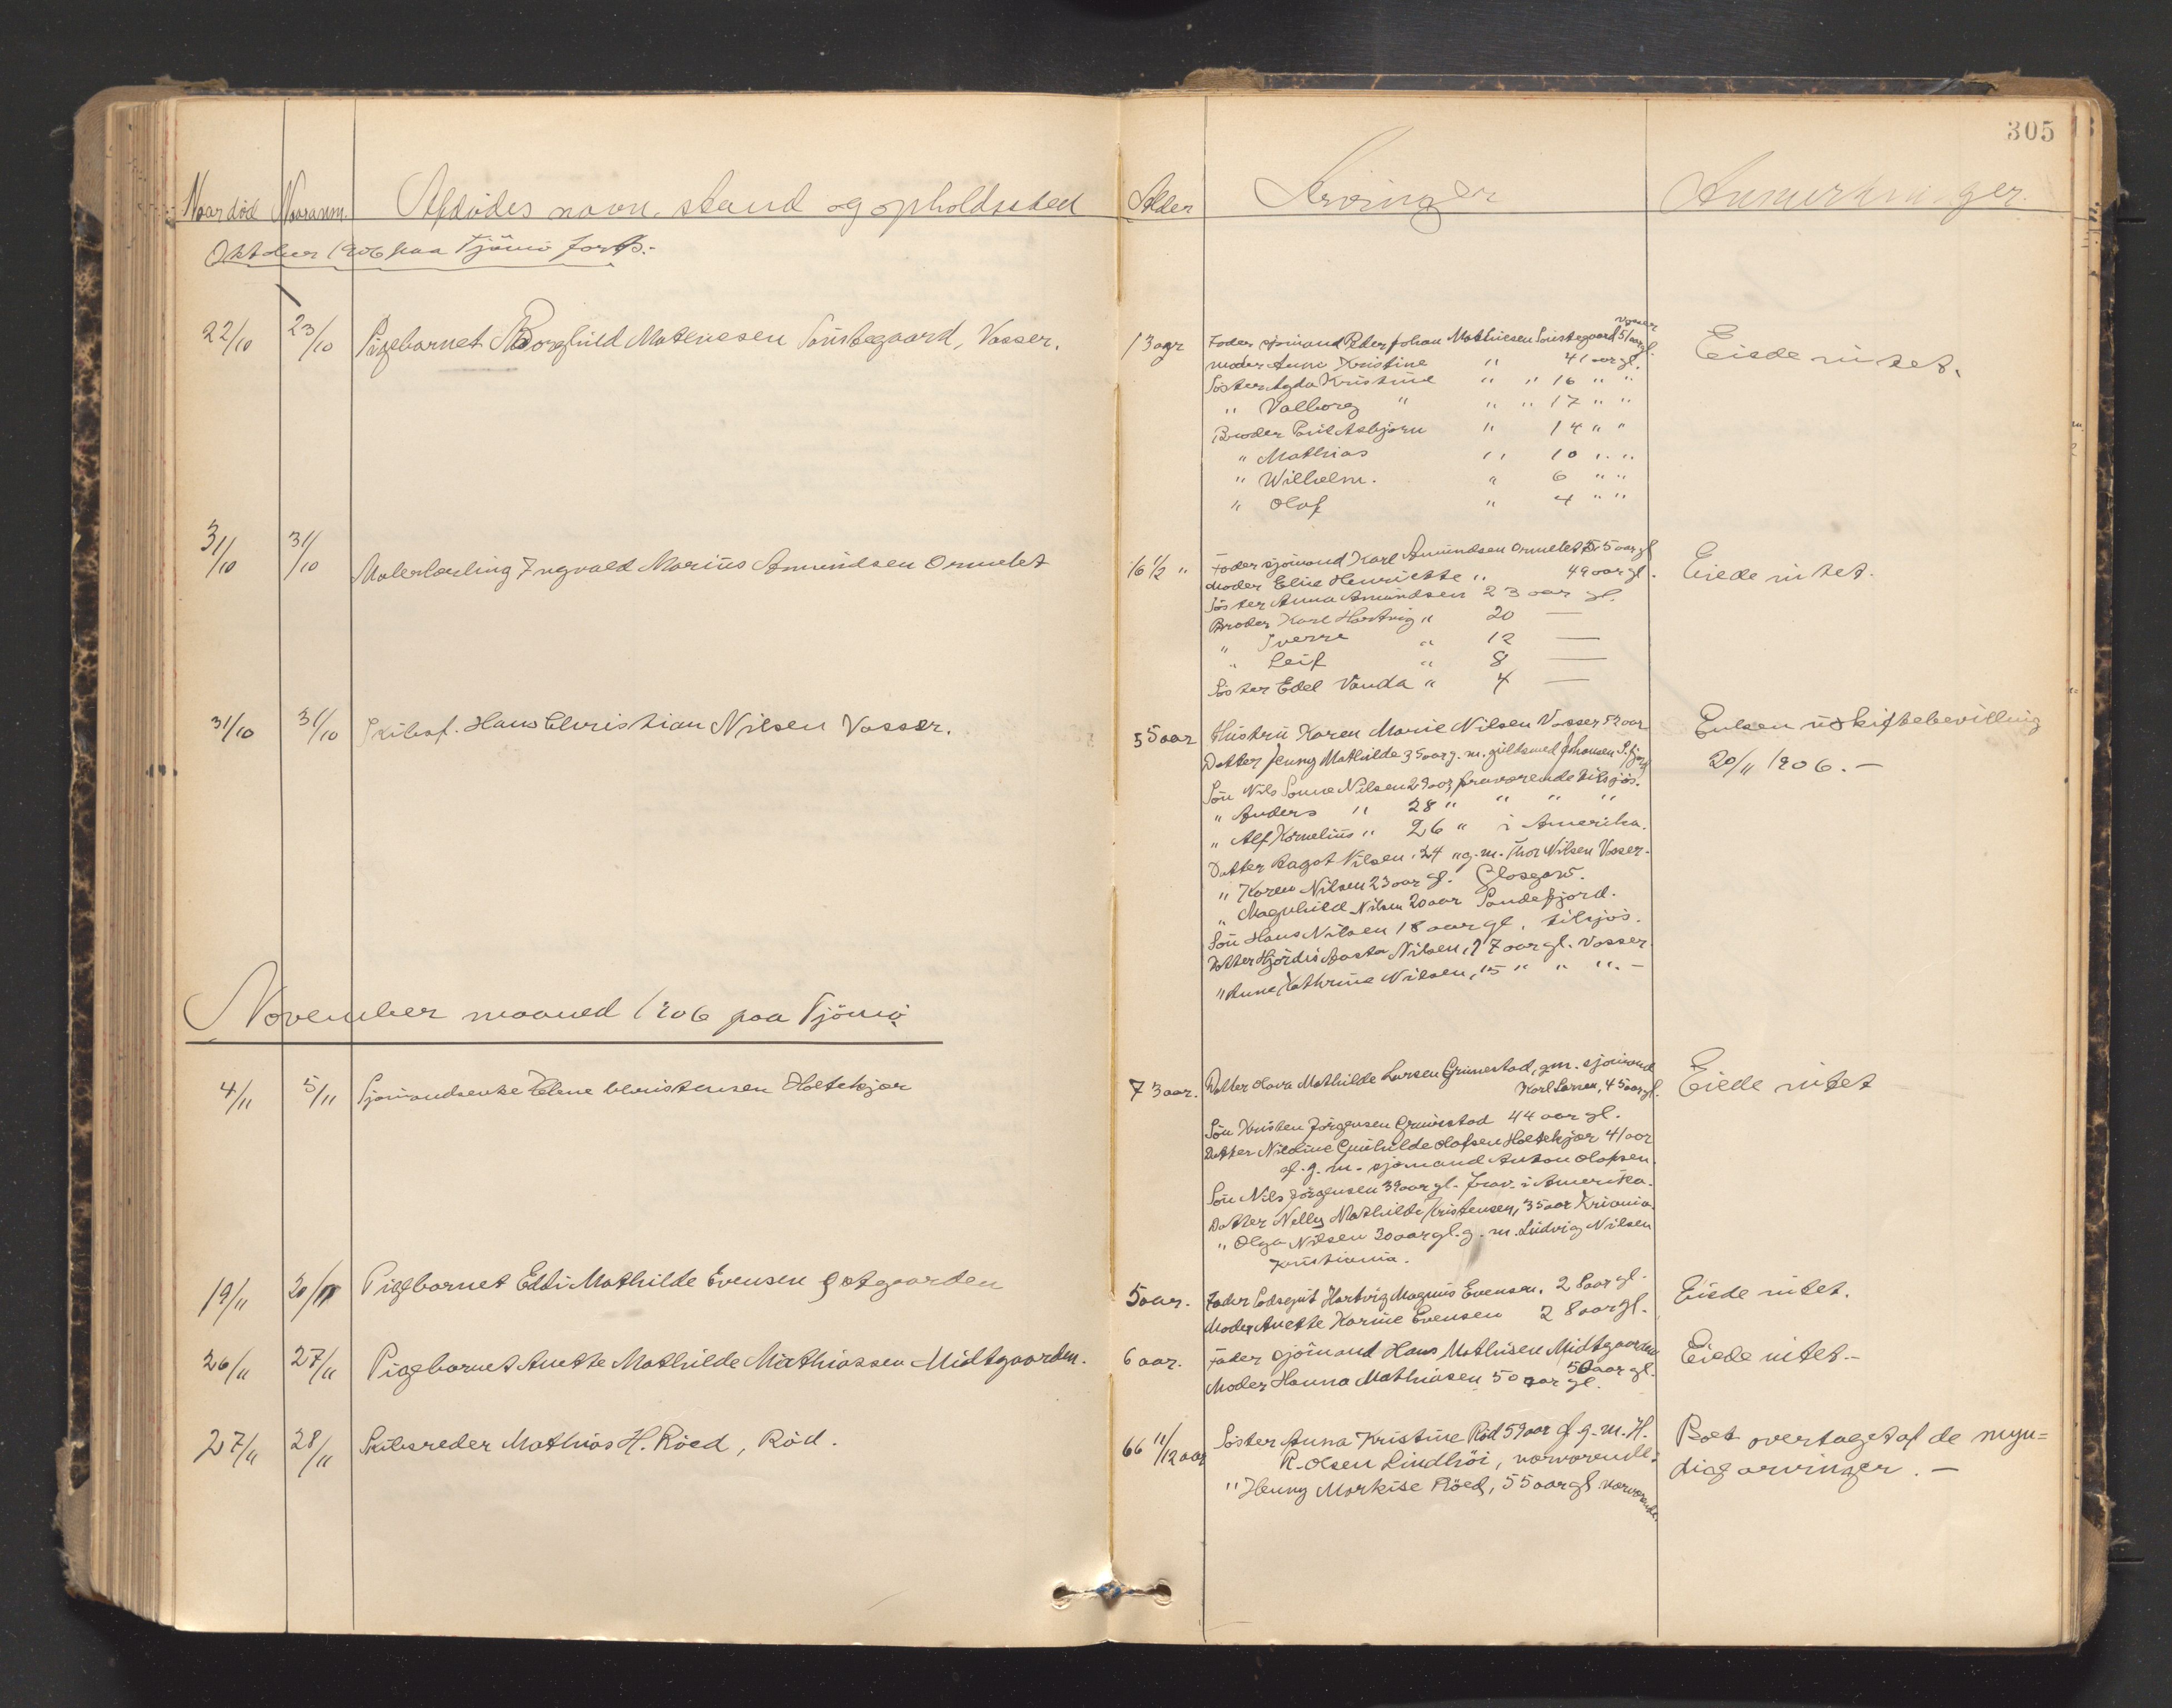 305
Naar død Naar anm. Afdødes navn, stand og opholdssted Alder Arvinger Anmerkninger.
Oktober 1906 paa Tjømø forts.-
22/10 23/10 Pigebarnet Borghild Mathiesen Sønstegaard, Vasser. 13 agr Fader sjömand Peder Johan Mathiesen Sønstegaard 51 aar gl. Eiede intet.
Vasser
moder Anna Kristine " 41 aar gl.
Söster Agda Kristine " " 16 " "
" Valborg " " " 17 " "
Broder Emil Asbjørn " 14 " "
" Mathias " 10 " "
" Wilhelm. " 6 " "
" Olaf " 4 " "
31/10 31/10 Malerlærling Ingvald Marius Amundsen Ormelet 16 1/2 " Fader sjömand Karl Amundsen Ormelet 55 aar gl Eiede intet.
Moder Elise Henriette " 49 aar gl.
Söster Anna Amundsen 23 aar gl.
Broder Karl Hartvig " 20 —
" Sverre " 12 —
" Leif " 8 —
Söster Edel Vanda " 4 —
31/10 31/10 Skibsf. Hans Christian Nilsen Vasser. 55 aar Hustru Karen Marie Nilsen Vasser 52 aar Enken uskiftebevilling
Datter Jenny Mathilde 35 aar g. m. guldsmed Johansen S.fjord 20/11 1906.-
Sön Nils Sonne Nilsen 29 aar fraværende tilsjös.
" Anders " 28 " " " "
" Alf Kornelius " 26 " i Amerika.
Datter Ragot Nilsen 24 " g. m. Thor Nilsen Vasser.
" Karen Nilsen 23 aar gl. Glasgow.
" Magnhild Nilsen 20 aar Sandefjord.
Sön Hans Nilsen 18 aar gl. tilsjös.
Datter Hjördis Aasta Nilsen, 17 aar gl. Vasser
" Anne Kathrine Nilsen, 15 " " ".-
November maaned 1906 paa Tjömö
4/11 5/11 Sjömandsenke Elene Christensen Holtekjær 73 aar. Datter Hava Mathilde Larsen Grimestad, gm. sjömand Eiede intet
Karl Larsen, 45 aar gl.
Sön Kristen Jörgensen Grimestad 44 aar gl.
Datter Nicoline Gunhilde Olafsen Holtekjær 41 aar
gl. g. m. sjömand Anton Olafsen.
Sön Nils Jörgensen 39 aar gl. frav. i Amerika.
Datter Nelly Mathilde Kristensen, 35 aar Kriania
" Olga Nilsen 30 aar gl. g. m. Ludvig Nilsen
Kristiania.
19/11 20/11 Pigebarnet Eddi Mathilde Evensen Østgaarden 5 aar. Fader Lodsgut Hartvig Magnus Evensen. 28 aar gl. Eiede intet.
Moder Anette Karine Evensen 28 aar gl.
26/11 27/11 Pigebarnet Anette Mathilde Mathiassen Midtgaarden. 6 aar. Fader sjömand Hans Mathisen Midtgaarden Eiede intet.-
50 aar gl.
Moder Hanna Mathiasen 50 aar gl.
27/11 28/11 Skibsreder Mathias H. Röed, Röd. 66 11/12 aar Söster Anna Kristine Röd 59 aar gl g. m. H. Boet overtaget af de myn=
R. Olsen Lindhöi, nærværende. dige arvinger.-
" Henny Markise Röed, 55 aar gl. nærværende.